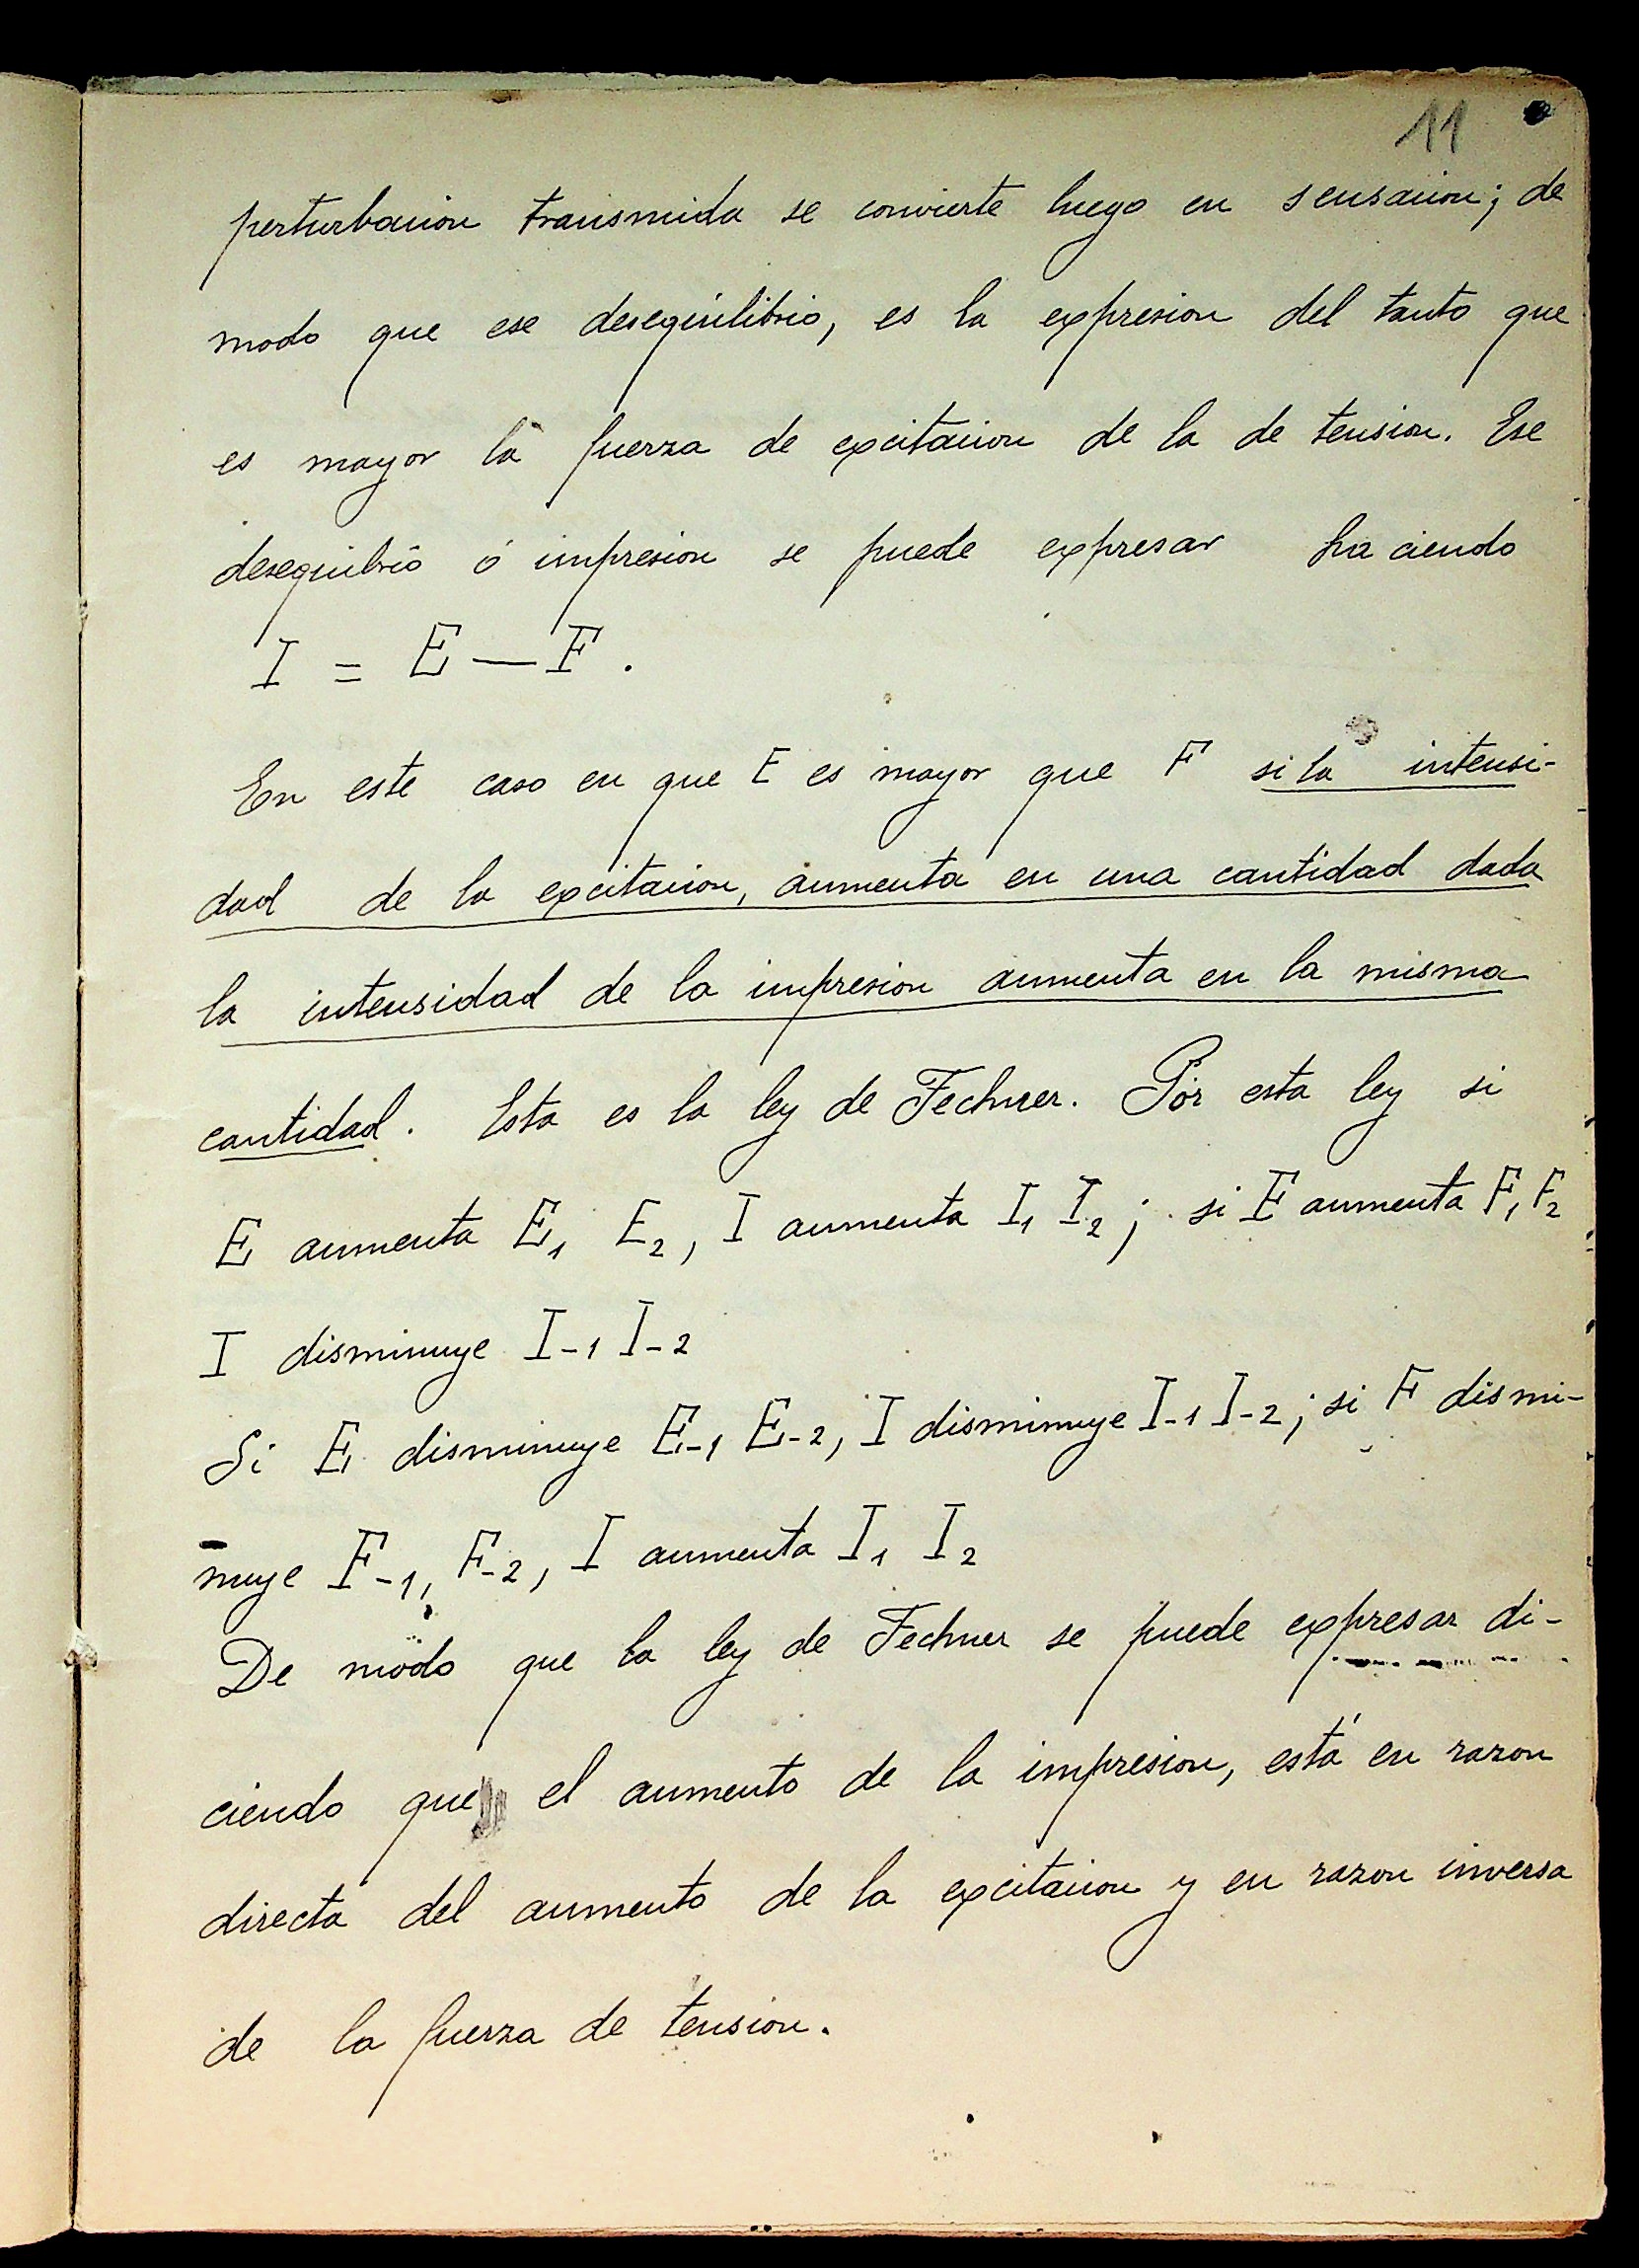 11
perturbacion transmida se convierte luego en sensacion; de
modo que ese desequilibrio, es la expresion del tanto que
es mayor la fuerza de excitacion de la de tension. Ese
desequibrio ó impresion se puede expresar haciendo
I = E — F.
En este caso en que E es mayor que F si la intensi-
dad de la excitacion, aumenta en una cantidad dada
la intensidad de la impresion aumenta en la misma
cantidad. Esta es la ley de Fechner. Por esta ley si
E aumenta E₁ E₂, I aumenta I₁ I₂; si F aumenta F₁ F₂
I disminuye I-1 I-2
Si E disminuye E-1 E-2, I disminuye I-1 I-2; si F dismi-
nuye F-1, F-2, I aumenta I₁ I₂
De modo que la ley de Fechner se puede expresar di-
ciendo que el aumento de la impresion, está en razon
directa del aumento de la excitacion y en razon inversa
de la fuerza de tension.